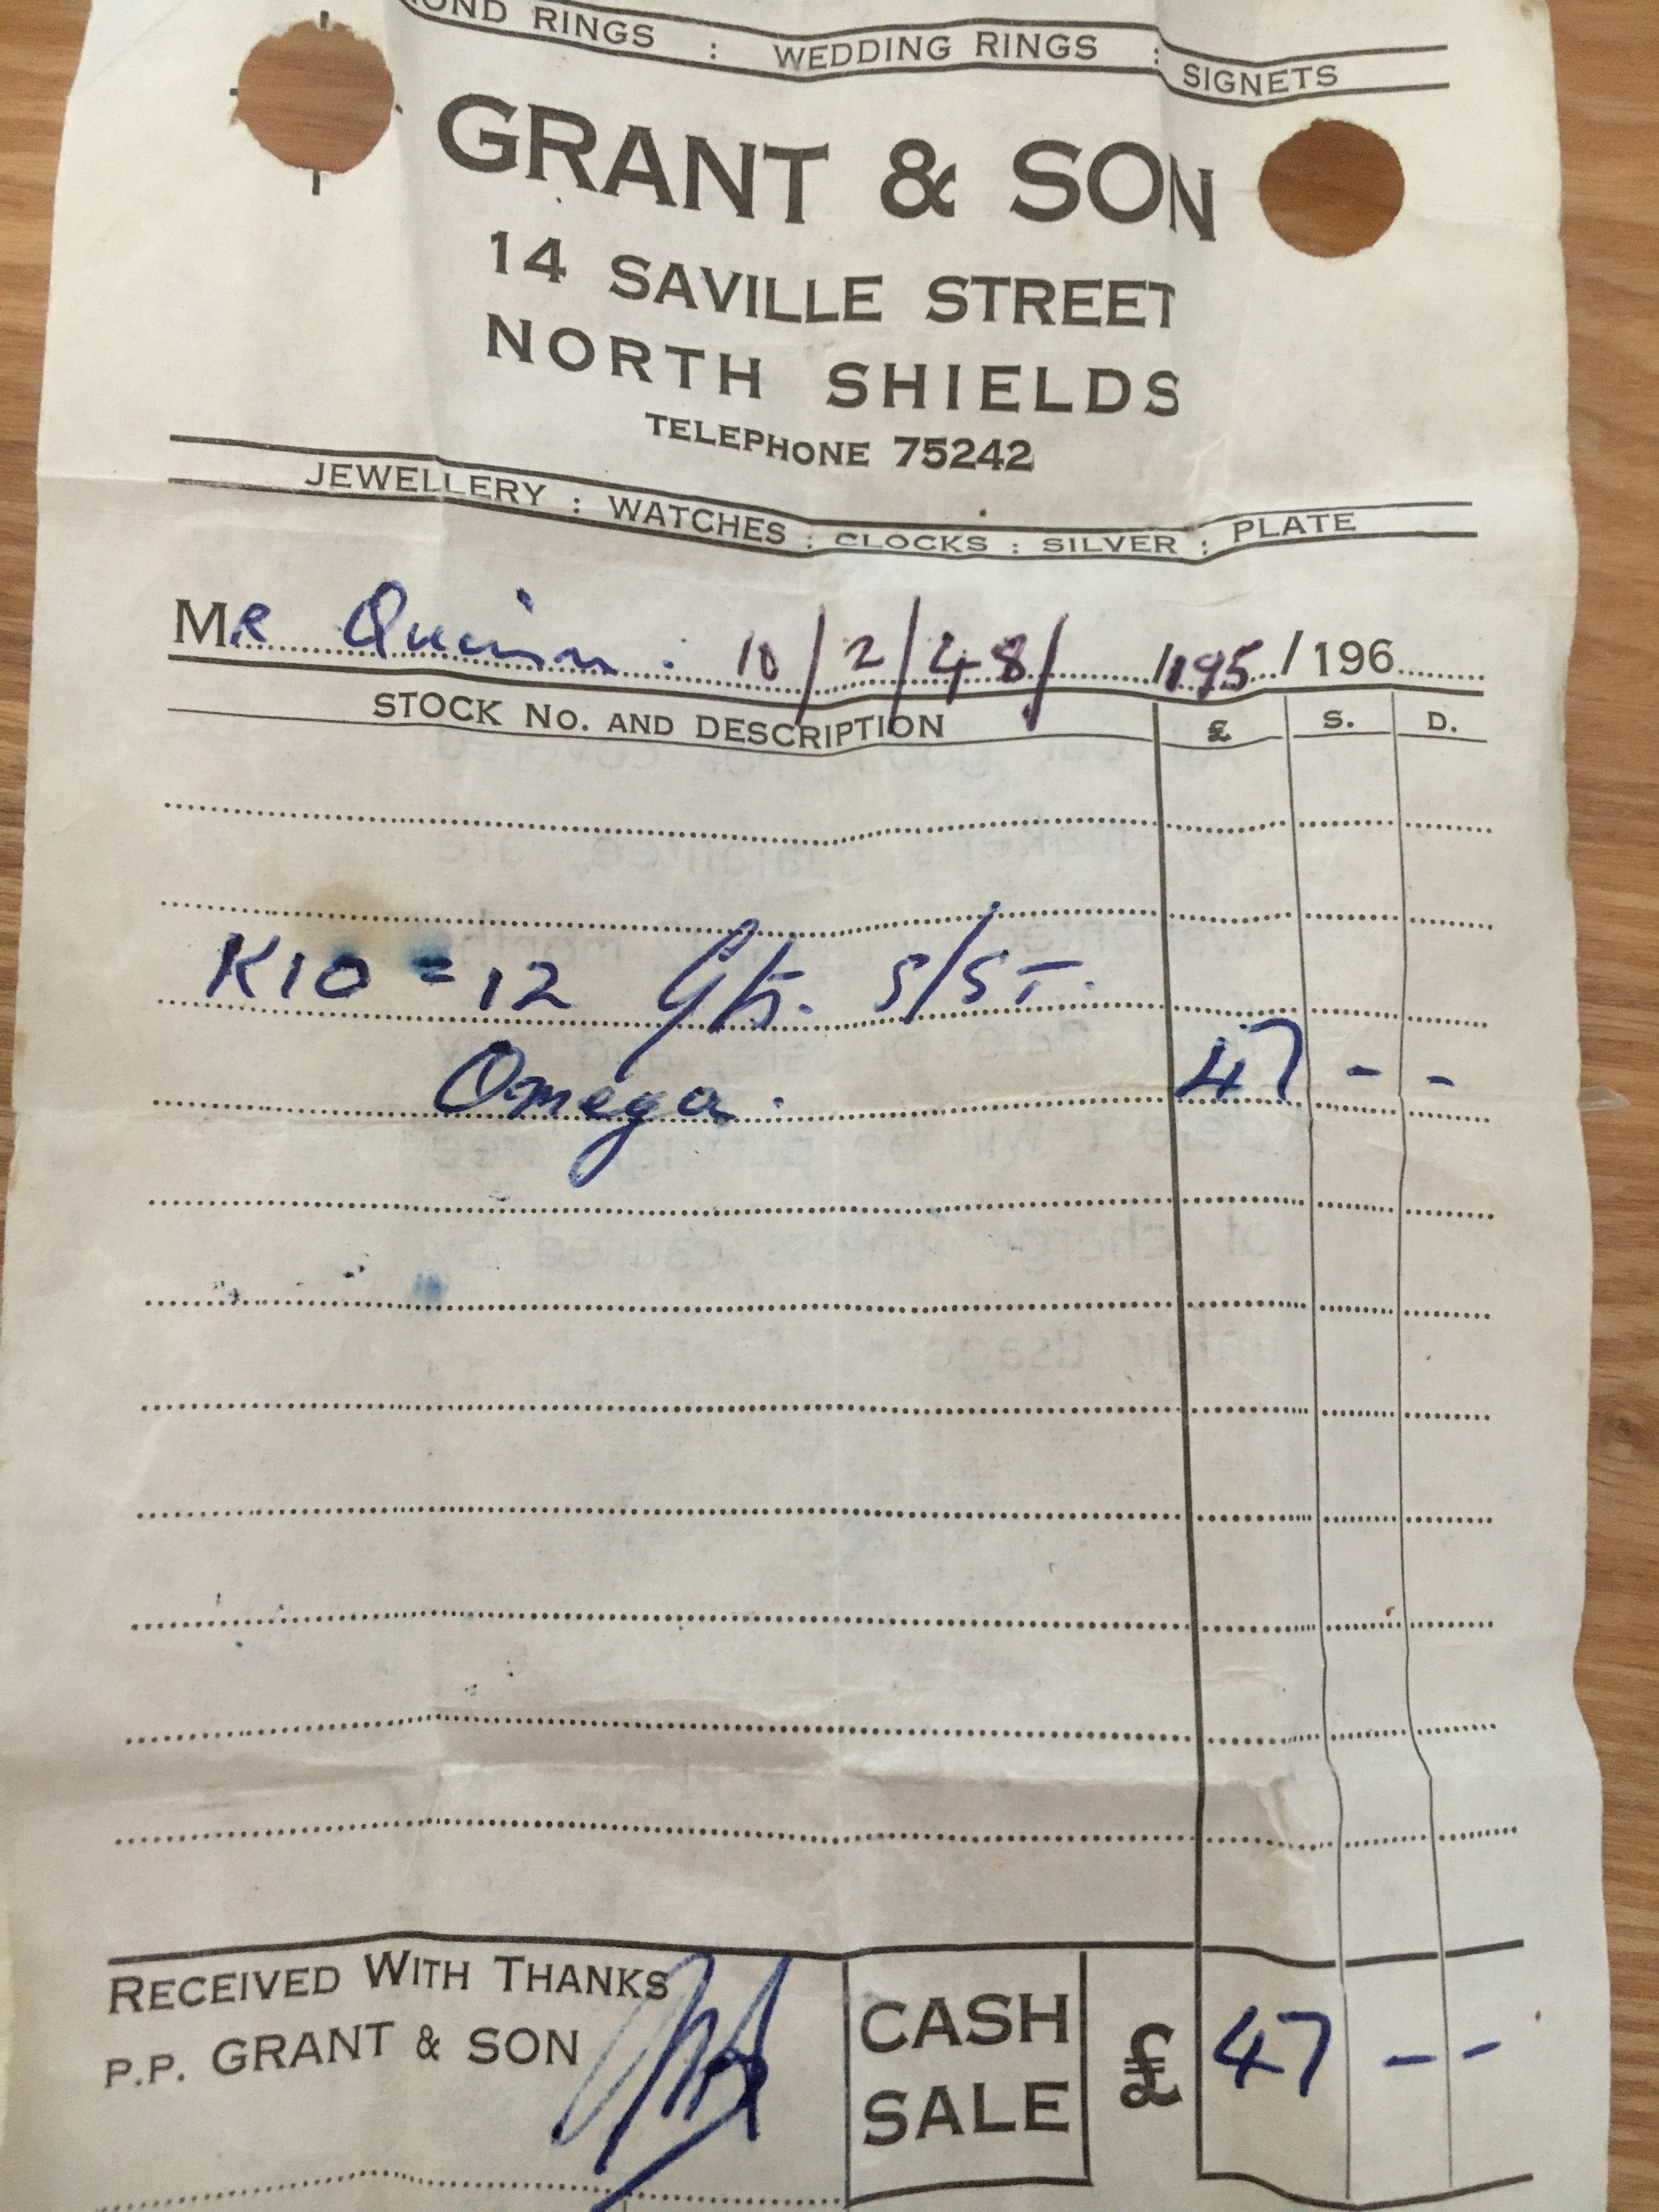 OND RINGS : WEDDING RINGS : SIGNETS
GRANT & SON
14 SAVILLE STREET
NORTH SHIELDS
TELEPHONE 75242
JEWELLERY : WATCHES : CLOCKS : SILVER : PLATE
MR Quinn. 10/2/48/ /195/196
STOCK No. AND DESCRIPTION £ S. D.
K10 = 12 S/ST.
Omega. 47 - -
RECEIVED WITH THANKS
P.P. GRANT & SON
CASH SALE £ 47 - -